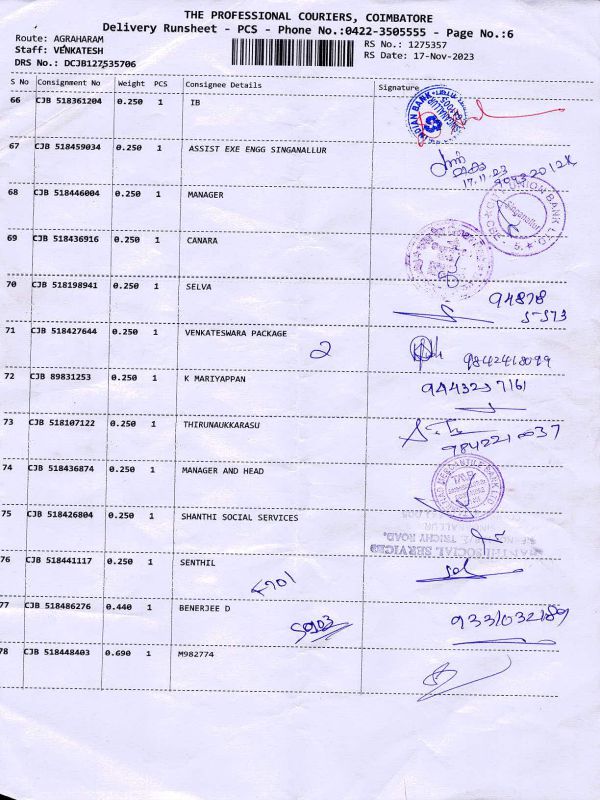 THE PROFESSIONAL COURIERS, COIMBATORE
Delivery Runsheet - PCS - Phone No.:0422-3505555 - Page No.:6
Route: AGRAHARAM
Staff: VENKATESH
DRS No.: DCJB127535706
RS No.: 1275357
RS Date: 17-Nov-2023
S No Consignment No Weight PCS Consignee Details Signature
66 CJB 518361204 0.250 1 IB
INDIAN BANK
67 CJB 518459034 0.250 1 ASSIST EXE ENGG SINGANALLUR
17.11.23
68 CJB 518446004 0.250 1 MANAGER
UNION BANK LTD.
Singanallur
69 CJB 518436916 0.250 1 CANARA
70 CJB 518198941 0.250 1 SELVA
94878
5-573
71 CJB 518427644 0.250 1 VENKATESWARA PACKAGE
2
9842418099
72 CJB 89831253 0.250 1 K MARIYAPPAN
9443237161
73 CJB 518107122 0.250 1 THIRUNAUKKARASU
9842210037
74 CJB 518436874 0.250 1 MANAGER AND HEAD
MERCANTILE BANK LTD
75 CJB 518426804 0.250 1 SHANTHI SOCIAL SERVICES
TRICHY ROAD,
SHANTHI SOCIAL SERVICES
76 CJB 518441117 0.250 1 SENTHIL
77 CJB 518486276 0.440 1 BENERJEE D
78 CJB 518448403 0.690 1 M982774